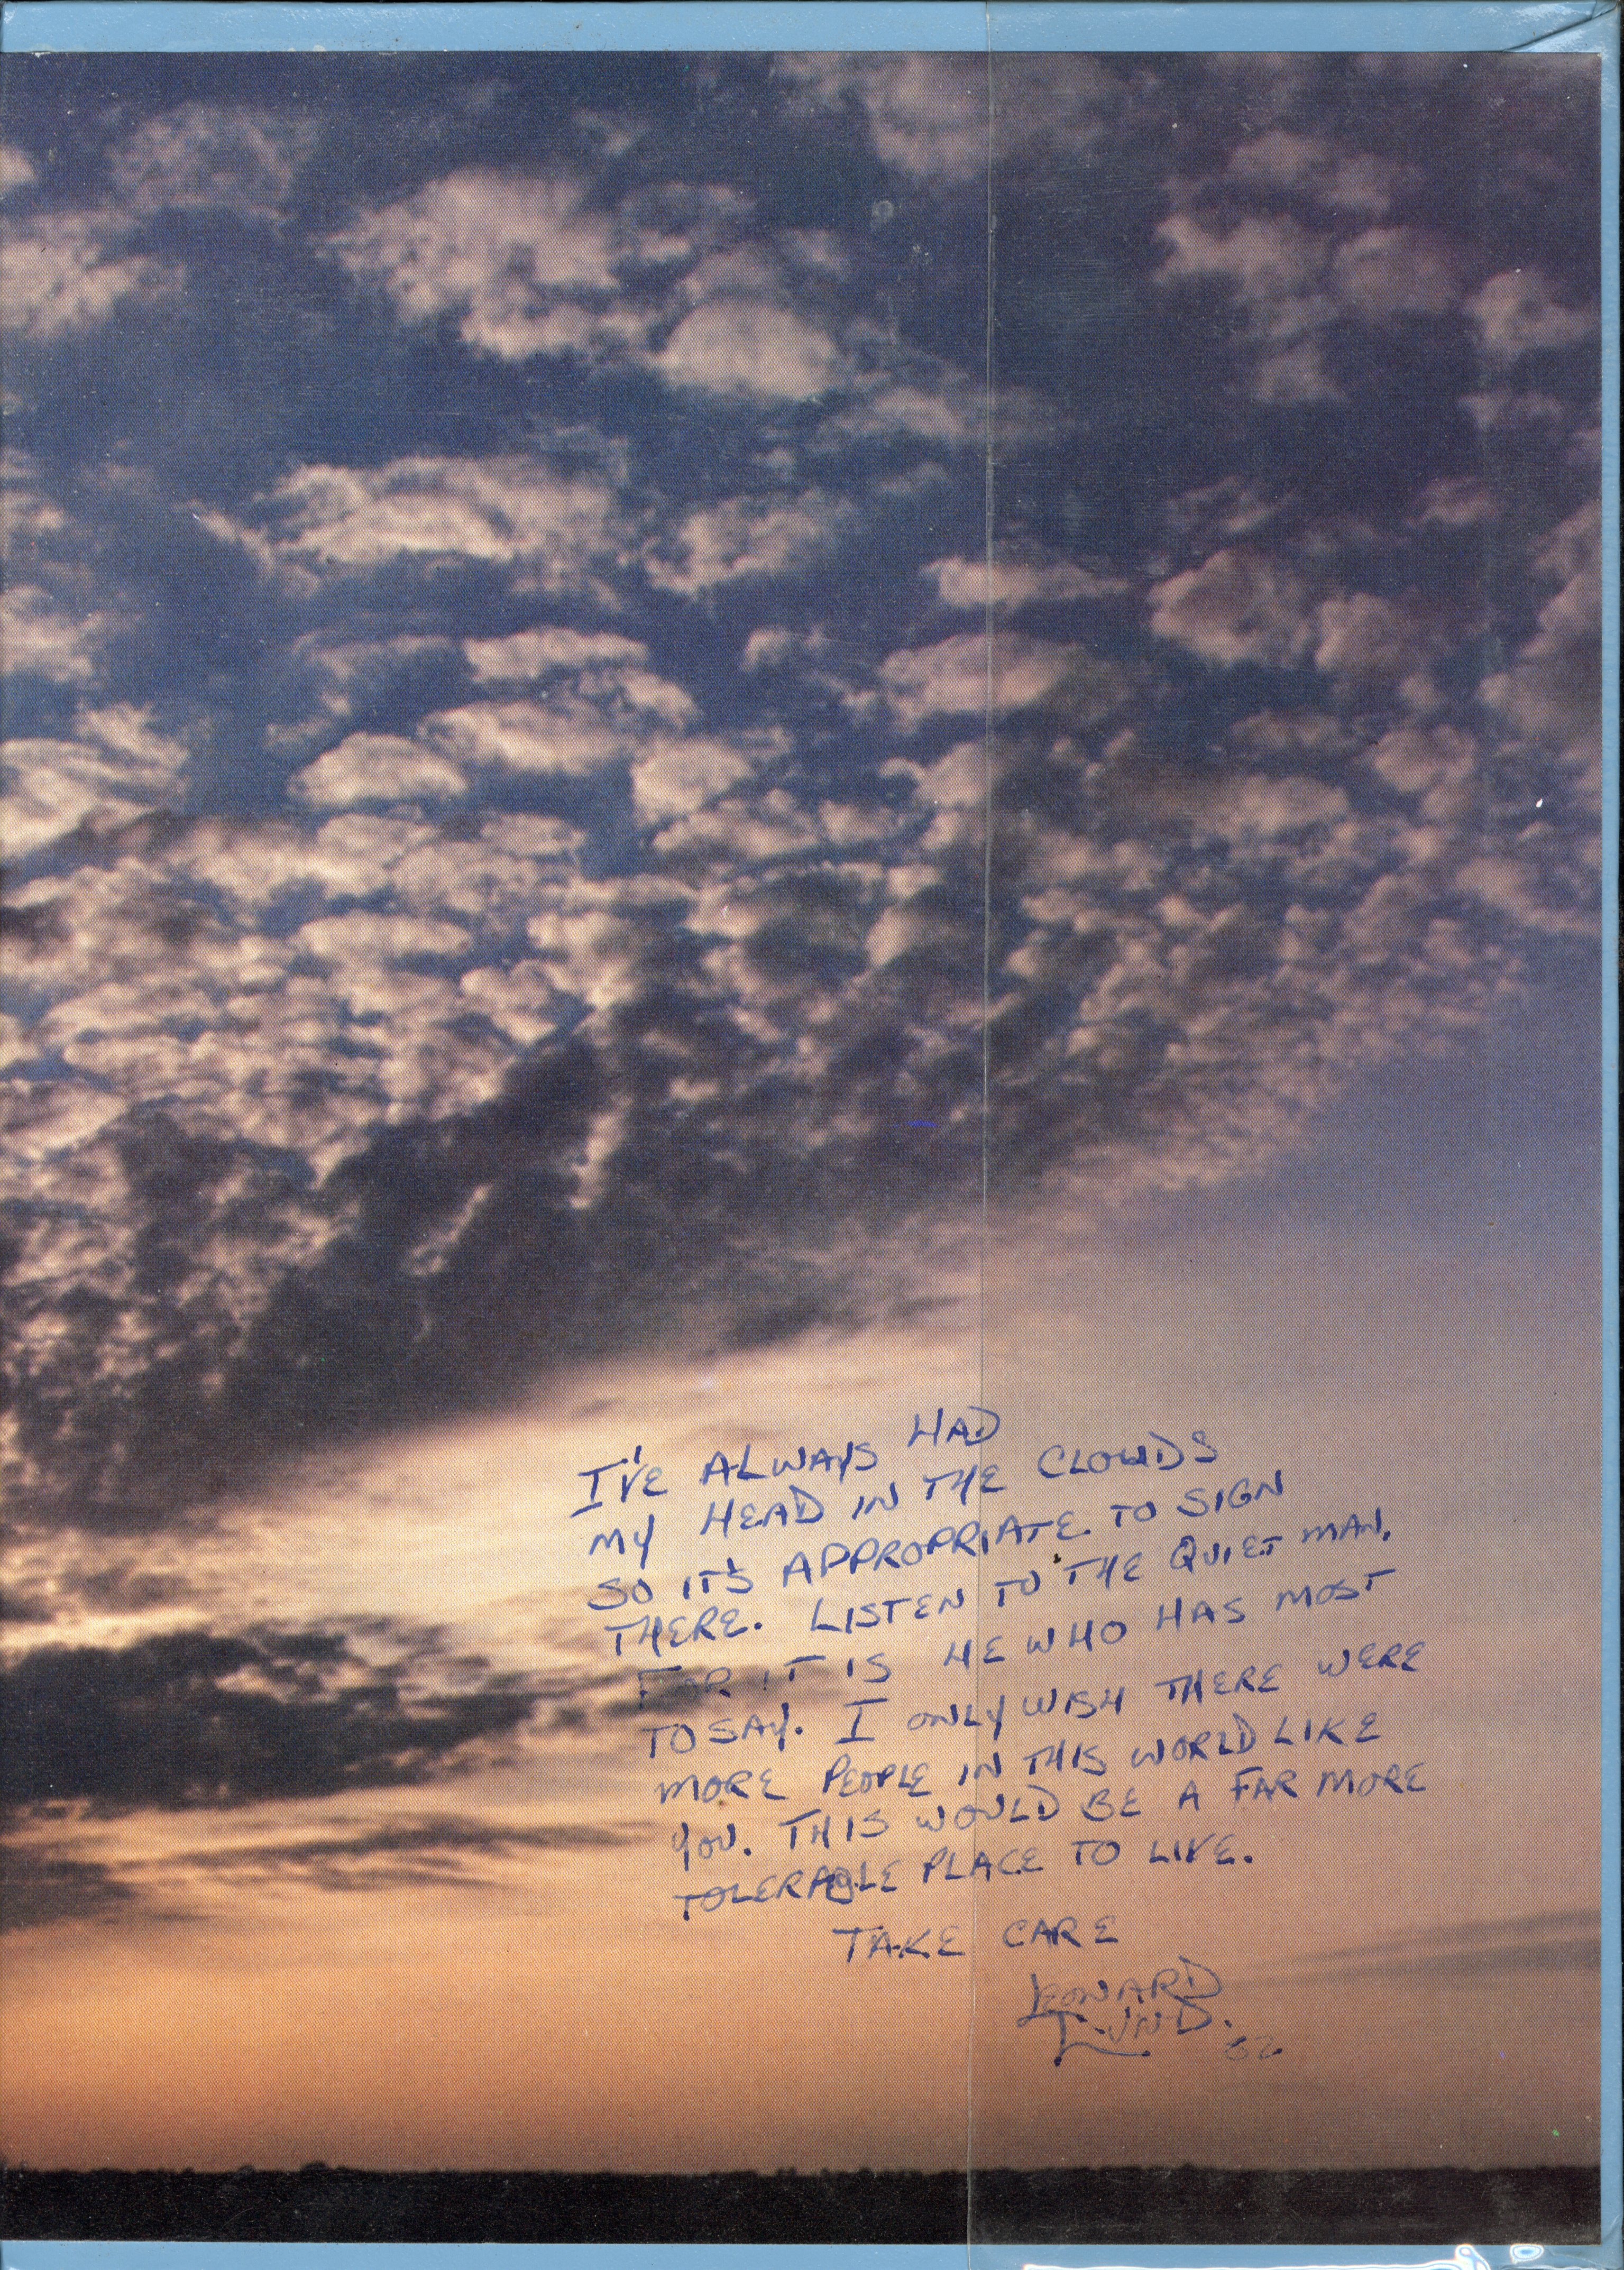 I'VE ALWAYS HAD
MY HEAD IN THE CLOUDS
SO IT'S APPROPRIATE TO SIGN
THERE. LISTEN TO THE QUIET MAN,
FOR IT IS HE WHO HAS MOST
TO SAY. I ONLY WISH THERE WERE
MORE PEOPLE IN THIS WORLD LIKE
YOU. THIS WOULD BE A FAR MORE
TOLERABLE PLACE TO LIVE.
TAKE CARE
LEONARD
LUND.
82